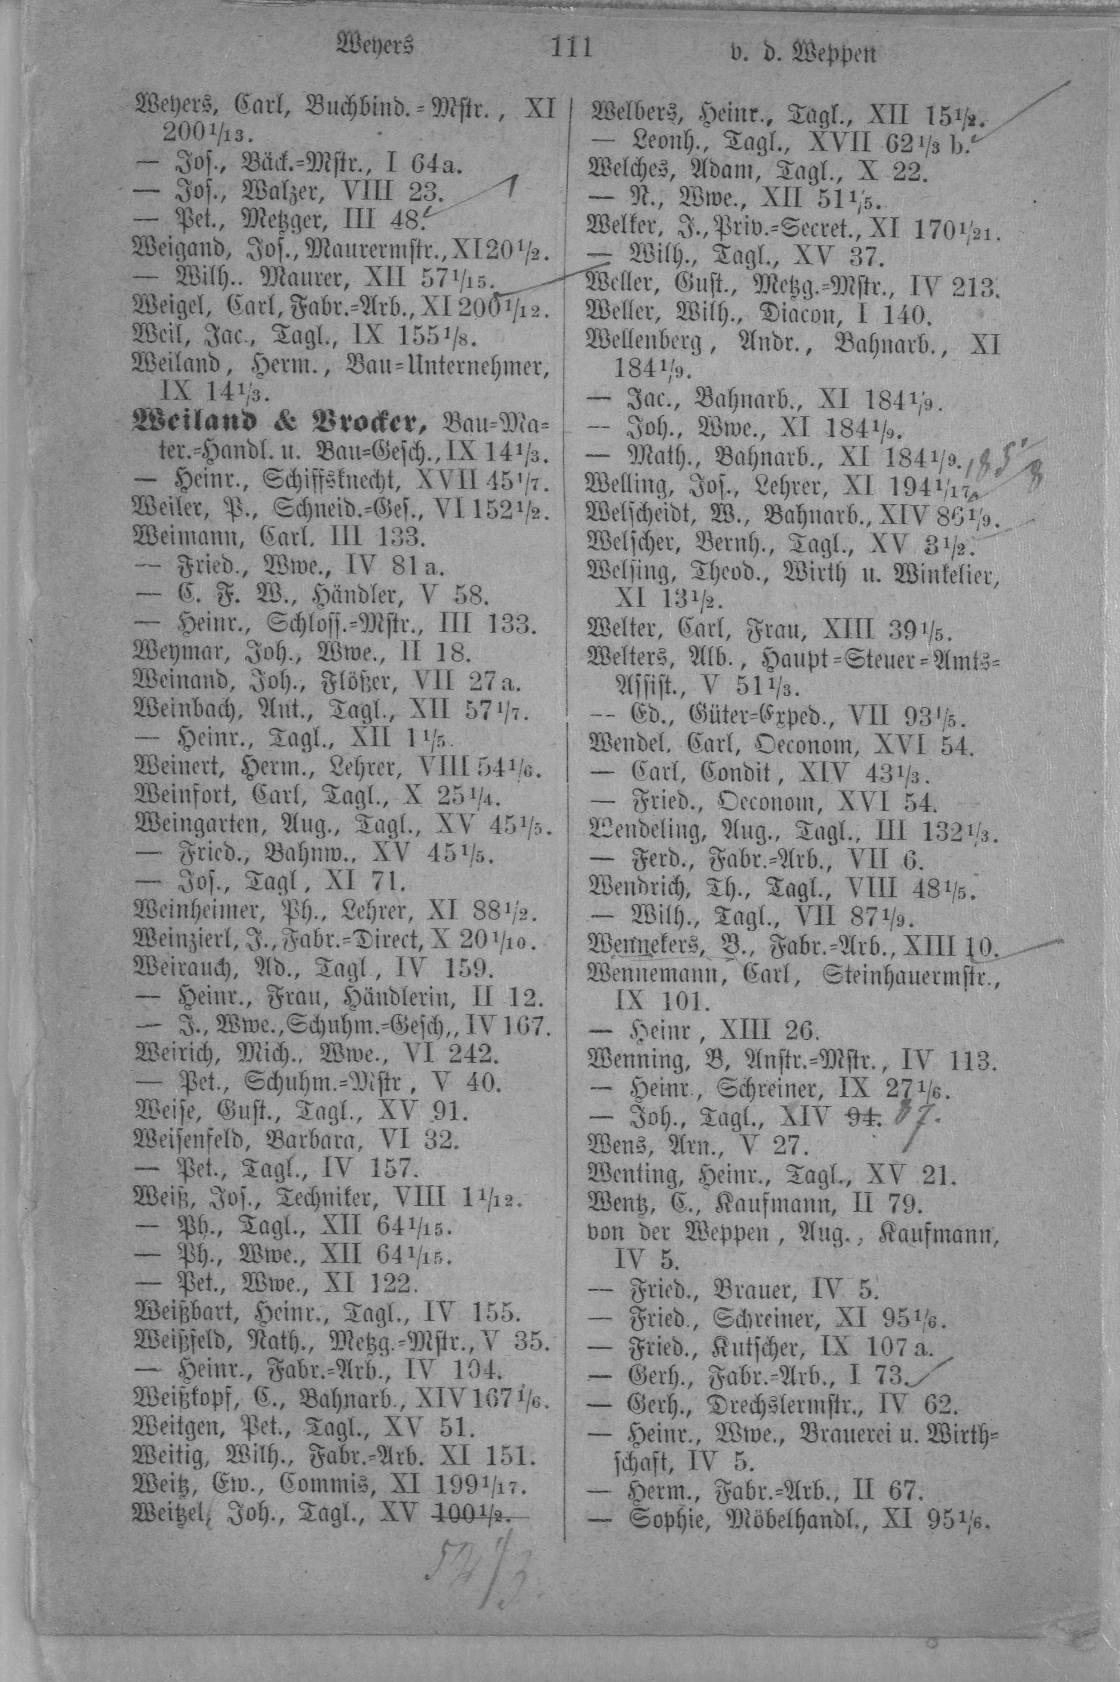 Weyers 111 v. d. Weppen
Weyers, Carl, Buchbind.=Mstr., XI
200 1/13.
— Jos., Bäck.=Mstr., I 64a.
— Jos., Walzer, VIII 23.
— Pet., Metzger, III 48.
Weigand, Jos., Maurermstr., XI 20 1/2.
— Wilh.. Maurer, XII 57 1/15.
Weigel, Carl, Fabr.=Arb., XI 200 1/12.
Weil, Jac., Tagl., IX 155 1/8.
Weiland, Herm., Bau=Unternehmer,
IX 14 1/3.
Weiland & Brocker, Bau=Ma=
ter.=Handl. u. Bau=Gesch., IX 14 1/3.
— Heinr., Schiffsknecht, XVII 45 1/7.
Weiler, P., Schneid.=Ges., VI 152 1/2.
Weimann, Carl. III 133.
— Fried., Wwe., IV 81a.
— C. F. W., Händler, V 58.
— Heinr., Schloss.=Mstr., III 133.
Weymar, Joh., Wwe., II 18.
Weinand, Joh., Flößer, VII 27a.
Weinbach, Ant., Tagl., XII 57 1/7.
— Heinr., Tagl., XII 1 1/5.
Weinert, Herm., Lehrer, VIII 54 1/6.
Weinfort, Carl, Tagl., X 25 1/4.
Weingarten, Aug., Tagl., XV 45 1/5.
— Fried., Bahnw., XV 45 1/5.
— Jos., Tagl, XI 71.
Weinheimer, Ph., Lehrer, XI 88 1/2.
Weinzierl, J., Fabr.=Direct, X 20 1/10.
Weirauch, Ad., Tagl, IV 159.
— Heinr., Frau, Händlerin, II 12.
— J., Wwe., Schuhm.=Gesch,, IV 167.
Weirich, Mich., Wwe., VI 242.
— Pet., Schuhm.=Mstr, V 40.
Weise, Gust., Tagl., XV 91.
Weisenfeld, Barbara, VI 32.
— Pet., Tagl., IV 157.
Weiß, Jos., Techniker, VIII 1 1/12.
— Ph., Tagl., XII 64 1/15.
— Ph., Wwe., XII 64 1/15.
— Pet., Wwe., XI 122.
Weißbart, Heinr., Tagl., IV 155.
Weißfeld, Nath., Metzg.=Mstr., V 35.
— Heinr., Fabr.=Arb., IV 104.
Weißkopf, C., Bahnarb., XIV 167 1/6.
Weitgen, Pet., Tagl., XV 51.
Weitig, Wilh., Fabr.=Arb. XI 151.
Weitz, Ew., Commis, XI 199 1/17.
Weitzel, Joh., Tagl., XV 100 1/2.
52 1/3.
Welbers, Heinr., Tagl., XII 15 1/2.
— Leonh., Tagl., XVII 62 1/3 b.
Welches, Adam, Tagl., X 22.
— N., Wwe., XII 51 1/5.
Welker, J., Priv.=Secret., XI 170 1/21.
— Wilh., Tagl., XV 37.
Weller, Gust., Metzg.=Mstr., IV 213.
Weller, Wilh., Diacon, I 140.
Wellenberg, Andr., Bahnarb., XI
184 1/9.
— Jac., Bahnarb., XI 184 1/9.
— Joh., Wwe., XI 184 1/9.
— Math., Bahnarb., XI 184 1/9.
Welling, Jos., Lehrer, XI 194 1/17.
Welscheidt, W., Bahnarb., XIV 86 1/9.
Welscher, Bernh., Tagl., XV 3 1/2.
Welsing, Theod., Wirth u. Winkelier,
XI 13 1/2.
Welter, Carl, Frau, XIII 39 1/5.
Welters, Alb., Haupt=Steuer=Amts=
Assist., V 51 1/3.
— Ed., Güter=Exped., VII 93 1/5.
Wendel, Carl, Oeconom, XVI 54.
— Carl, Condit, XIV 43 1/3.
— Fried., Oeconom, XVI 54.
Wendeling, Aug., Tagl., III 132 1/3.
— Ferd., Fabr.=Arb., VII 6.
Wendrich, Th., Tagl., VIII 48 1/5.
— Wilh., Tagl., VII 87 1/9.
Wennekers, B., Fabr.=Arb., XIII 10.
Wennemann, Carl, Steinhauermstr.,
IX 101.
— Heinr, XIII 26.
Wenning, B, Anstr.=Mstr., IV 113.
— Heinr., Schreiner, IX 27 1/6.
— Joh., Tagl., XIV 94. 87.
Wens, Arn., V 27.
Wenting, Heinr., Tagl., XV 21.
Wentz, C., Kaufmann, II 79.
von der Weppen, Aug., Kaufmann,
IV 5.
— Fried., Brauer, IV 5.
— Fried., Schreiner, XI 95 1/6.
— Fried., Kutscher, IX 107a.
— Gerh., Fabr.=Arb., I 73.
— Gerh., Drechslermstr., IV 62.
— Heinr., Wwe., Brauerei u. Wirth=
schaft, IV 5.
— Herm., Fabr.=Arb., II 67.
— Sophie, Möbelhandl., XI 95 1/6.